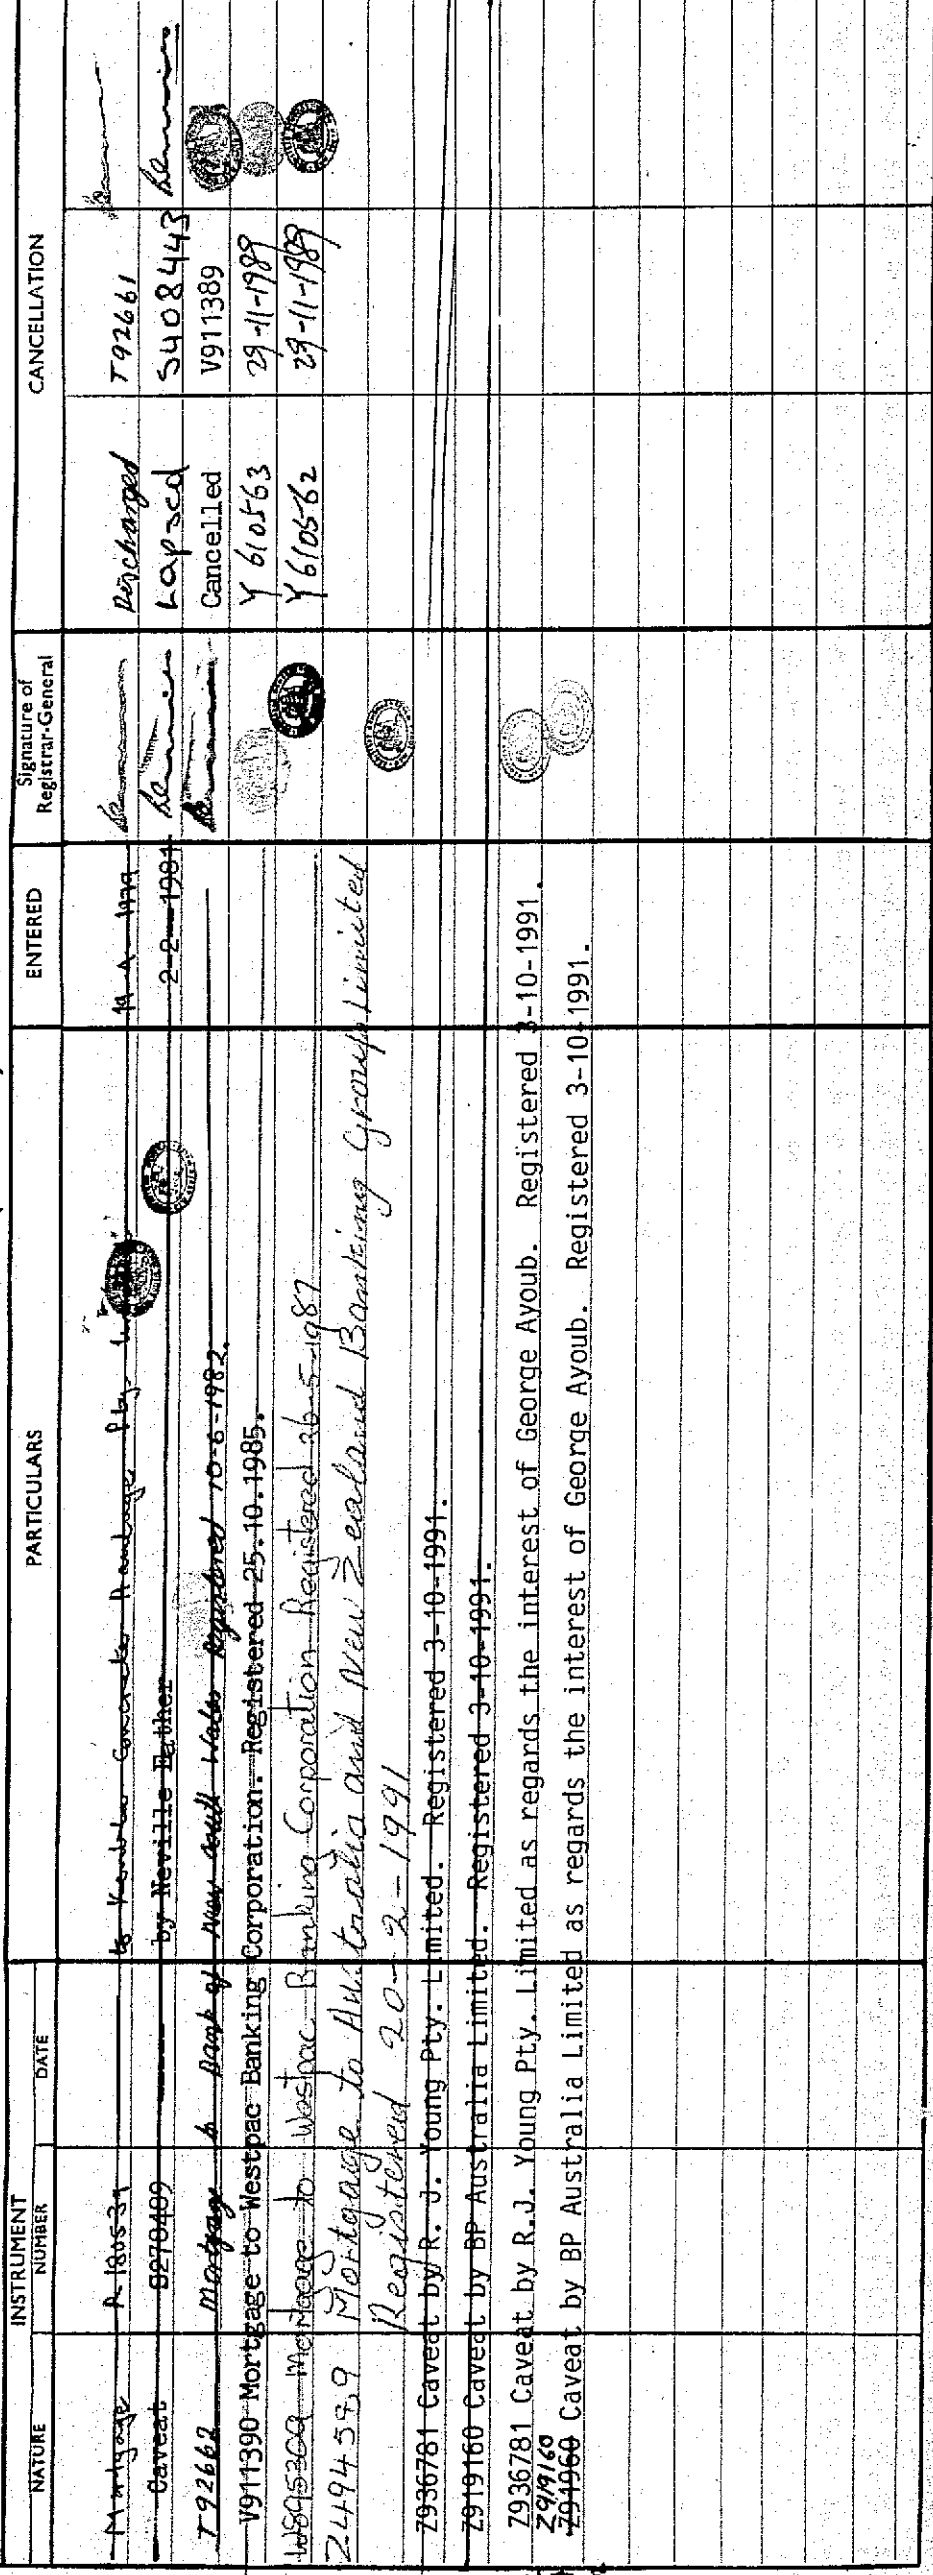 INSTRUMENT
NATURE NUMBER DATE PARTICULARS ENTERED Signature of Registrar-General CANCELLATION
Mortgage R180539 to Kembla Concrete Pty. Discharged T92661
Caveat S270409 by Neville Father 2-2-1981 Lapsed S408443
T92662 Mortgage to Bank of New South Wales Registered 10-6-1982. Cancelled V911389
V911390 Mortgage to Westpac Banking Corporation. Registered 25.10.1985. Y 610563 29-11-1989
W895369 Mortgage to Westpac Banking Corporation Registered 26-5-1987 Y 610562 29-11-1989
Z494589 Mortgage to Australia and New Zealand Banking Group Limited
Registered 20-2-1991
Z936781 Caveat by R. J. Young Pty. Limited. Registered 3-10-1991.
Z919160 Caveat by BP Australia Limited. Registered 3-10-1991.
Z936781 Caveat by R.J. Young Pty. Limited as regards the interest of George Ayoub. Registered 3-10-1991.
Z919160
Z91960 Caveat by BP Australia Limited as regards the interest of George Ayoub. Registered 3-10-1991.